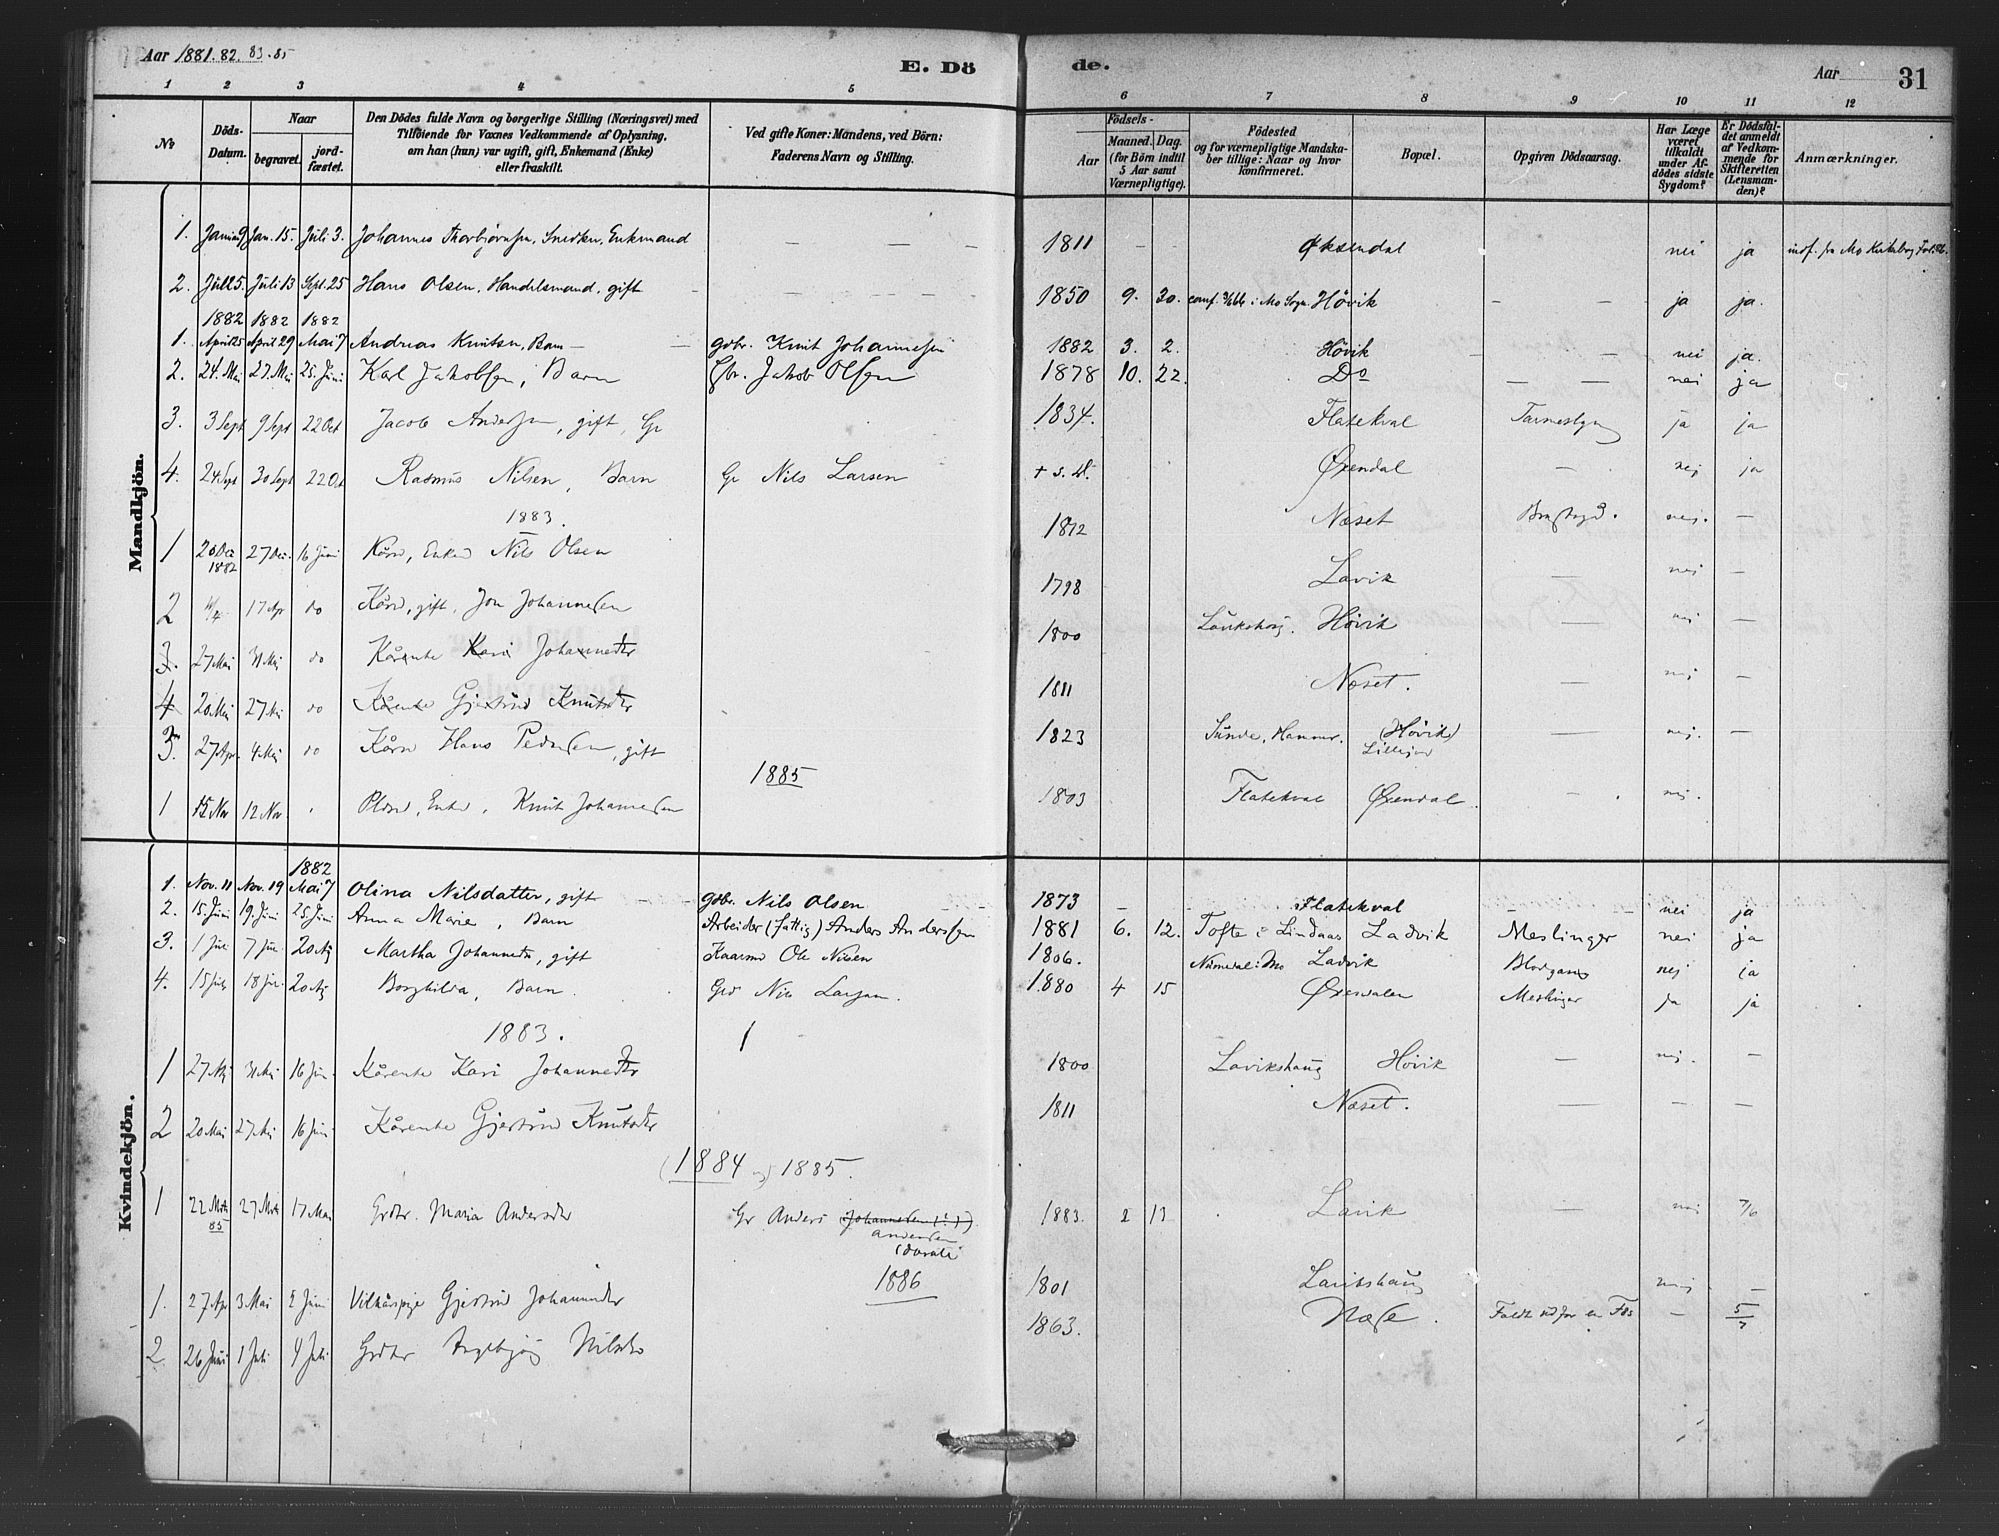 Aar 1881. 82. 83. 85
E. Dö
de.
Aar
31
1 2 3 4 5 6 7 8 9 10 11 12
No
Döds-Datum.
Naar
begravet.
jord-fæstet.
Den Dödes fulde Navn og borgerlige Stilling (Næringsvei) med
Tilföiende for Voxnes Vedkommende af Oplysning,
om han (hun) var ugift, gift, Enkemand (Enke)
eller fraskilt.
Ved gifte Koner: Mandens, ved Börn:
Faderens Navn og Stilling.
Födsels-
Aar
Maaned. Dag.
(for Börn indtil
5 Aar samt
Værnepligtige).
Födested
og for værnepligtige Mandska-
ber tillige: Naar og hvor
konfirmeret.
Bopæl.
Opgiven Dödsaarsag.
Har Læge
været
tilkaldt
under Af-
dödes sidste
Sygdom?
Er Dödsfal-
det anmeldt
af Vedkom-
mende for
Skifteretten
(Lensman-
den)?
Anmærkninger.
Mandkjön.
1. Januar 9 Jan. 15. Juli 3. Johannes Thorbjørnsen, Snedker, Enkemand — — — 1811 — — Øksendal nei ja indf. fra Mo
2. Juli 5. Juli 13 Sept. 25 Hans Olsen, Handelsmand, gift — — — 1850 9. 20. i Mo Sogn Høvik — — ja ja.
1882 1882 1882
1. April 25 April 29 Mai 7 Andreas Knutsen, Barn — — gdbr. Knut Johannesen 1882 3. 2. Høvik — — nei ja.
2. 24. Mai 27. Mai 25. Juni Karl Jakobsen, Barn Gbr. Jakob Olsen 1878 10. 22. Do — — nei ja
3. 3 Sept 9 Sept 22 Oct Jacob Andersen, gift, Gr 1834. Flatekval ja ja
4. 24 Sept 30 Sept 22 Oct Rasmus Nilsen, Barn Gr Nils Larsen + s. d. Øxendal — nej ja
1883.
1 20 Dec 1882 27 Dec. 16 Juni Kårm, Enkem Nils Olsen 1812 Næset nej. —
2 17 Apr do Kårm, gift, Jon Johannesen 1798 Lavik — nej —
3. 27 Mai 31 Mai do Kårenke Kari Johannesdtr 1800 Høvik — nej —
4 20 Mai 27 Mai do Kårenke Gjertrud Knutsdtr 1811 Næset. nej —
3. 27 Apr. 4 Mai do Kårm Hans Pedersen, gift 1823 Sunde, Hammer. (Høvik) — nej. —
1885
1 12 Nov Enkem, Knut Johannesen 1803 Flatekval Øxendal — nej.
Kvindekjön.
1882
1. Nov. 11 Nov. 19 Mai 7 Olina Nilsdatter, gift — gdbr. Nils Olsen 1873 — Flatekval — — nei ja
2. 15. Juni 19. Juni 25. Juni Anna Marie, Barn Arbeider (fattig) Anders Andersen 1881 6. 12. Tofte i Lindaas Ladvik Meslinger nei ja
3. 1 Jul 7 Jul 20 Ag Martha Johannesdtr, gift Kaarmd Ole Nilsen 1806. Mo Ladvik nej ja
4. 15 Jul 18 Jul 20 Ag Borghilda, Barn Grd Nils Larsen. 1880 4 15 Øxendalen Meslinger ja ja
1883.
1 27 Mai 31 Mai 16 Jun. Kårenke Kari Johannesdtr 1800 Lavikshaug Høvik — nej. —
2 20 Mai 27 Mai 16 Juni Kårenke Gjertrud Knutsdtr 1811 Næset. — — —
(1884 og) 1885.
1 22 Mrts 85 27 Mrts 17 Mai Grdtr. Maria Andersdtr Gr Anders Johannesen (!) Andersen 1883. 2 13 Lavik — nei 7/6
1886
1. 27 Apr 3 Mai 2 Juni Vilkårspige Gjertrud Johannesdtr 1801 Lavikshaug nej —
2. 26 Juni 1 Juli 4 Juli Grdtr Ingebjørg Nilsdtr 1863. Næse. Faldt ud for en Fos — 5/7